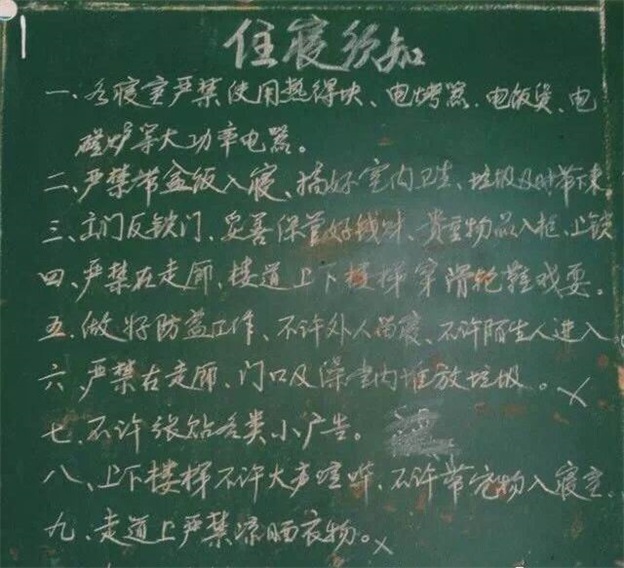 住寝须知
一、各寝室严禁使用热得快、电烤器、电饭煲、电
磁炉等大功率电器。
二、严禁带盒饭入寝、搞好室内卫生、垃圾及时带下来。
三、出门反锁门、妥善保管好钱财、贵重物品入柜、上锁
四、严禁在走廊、楼道上下楼梯穿滑轮鞋戏耍。
五、做好防盗工作、不许外人留寝、不许陌生人进入。
六、严禁在走廊、门口及澡室内堆放垃圾。×
七、不许张贴各类小广告。
八、上下楼梯不许大声喧哗、不许带宠物入寝室.
九、走道上严禁凉晒衣物。×